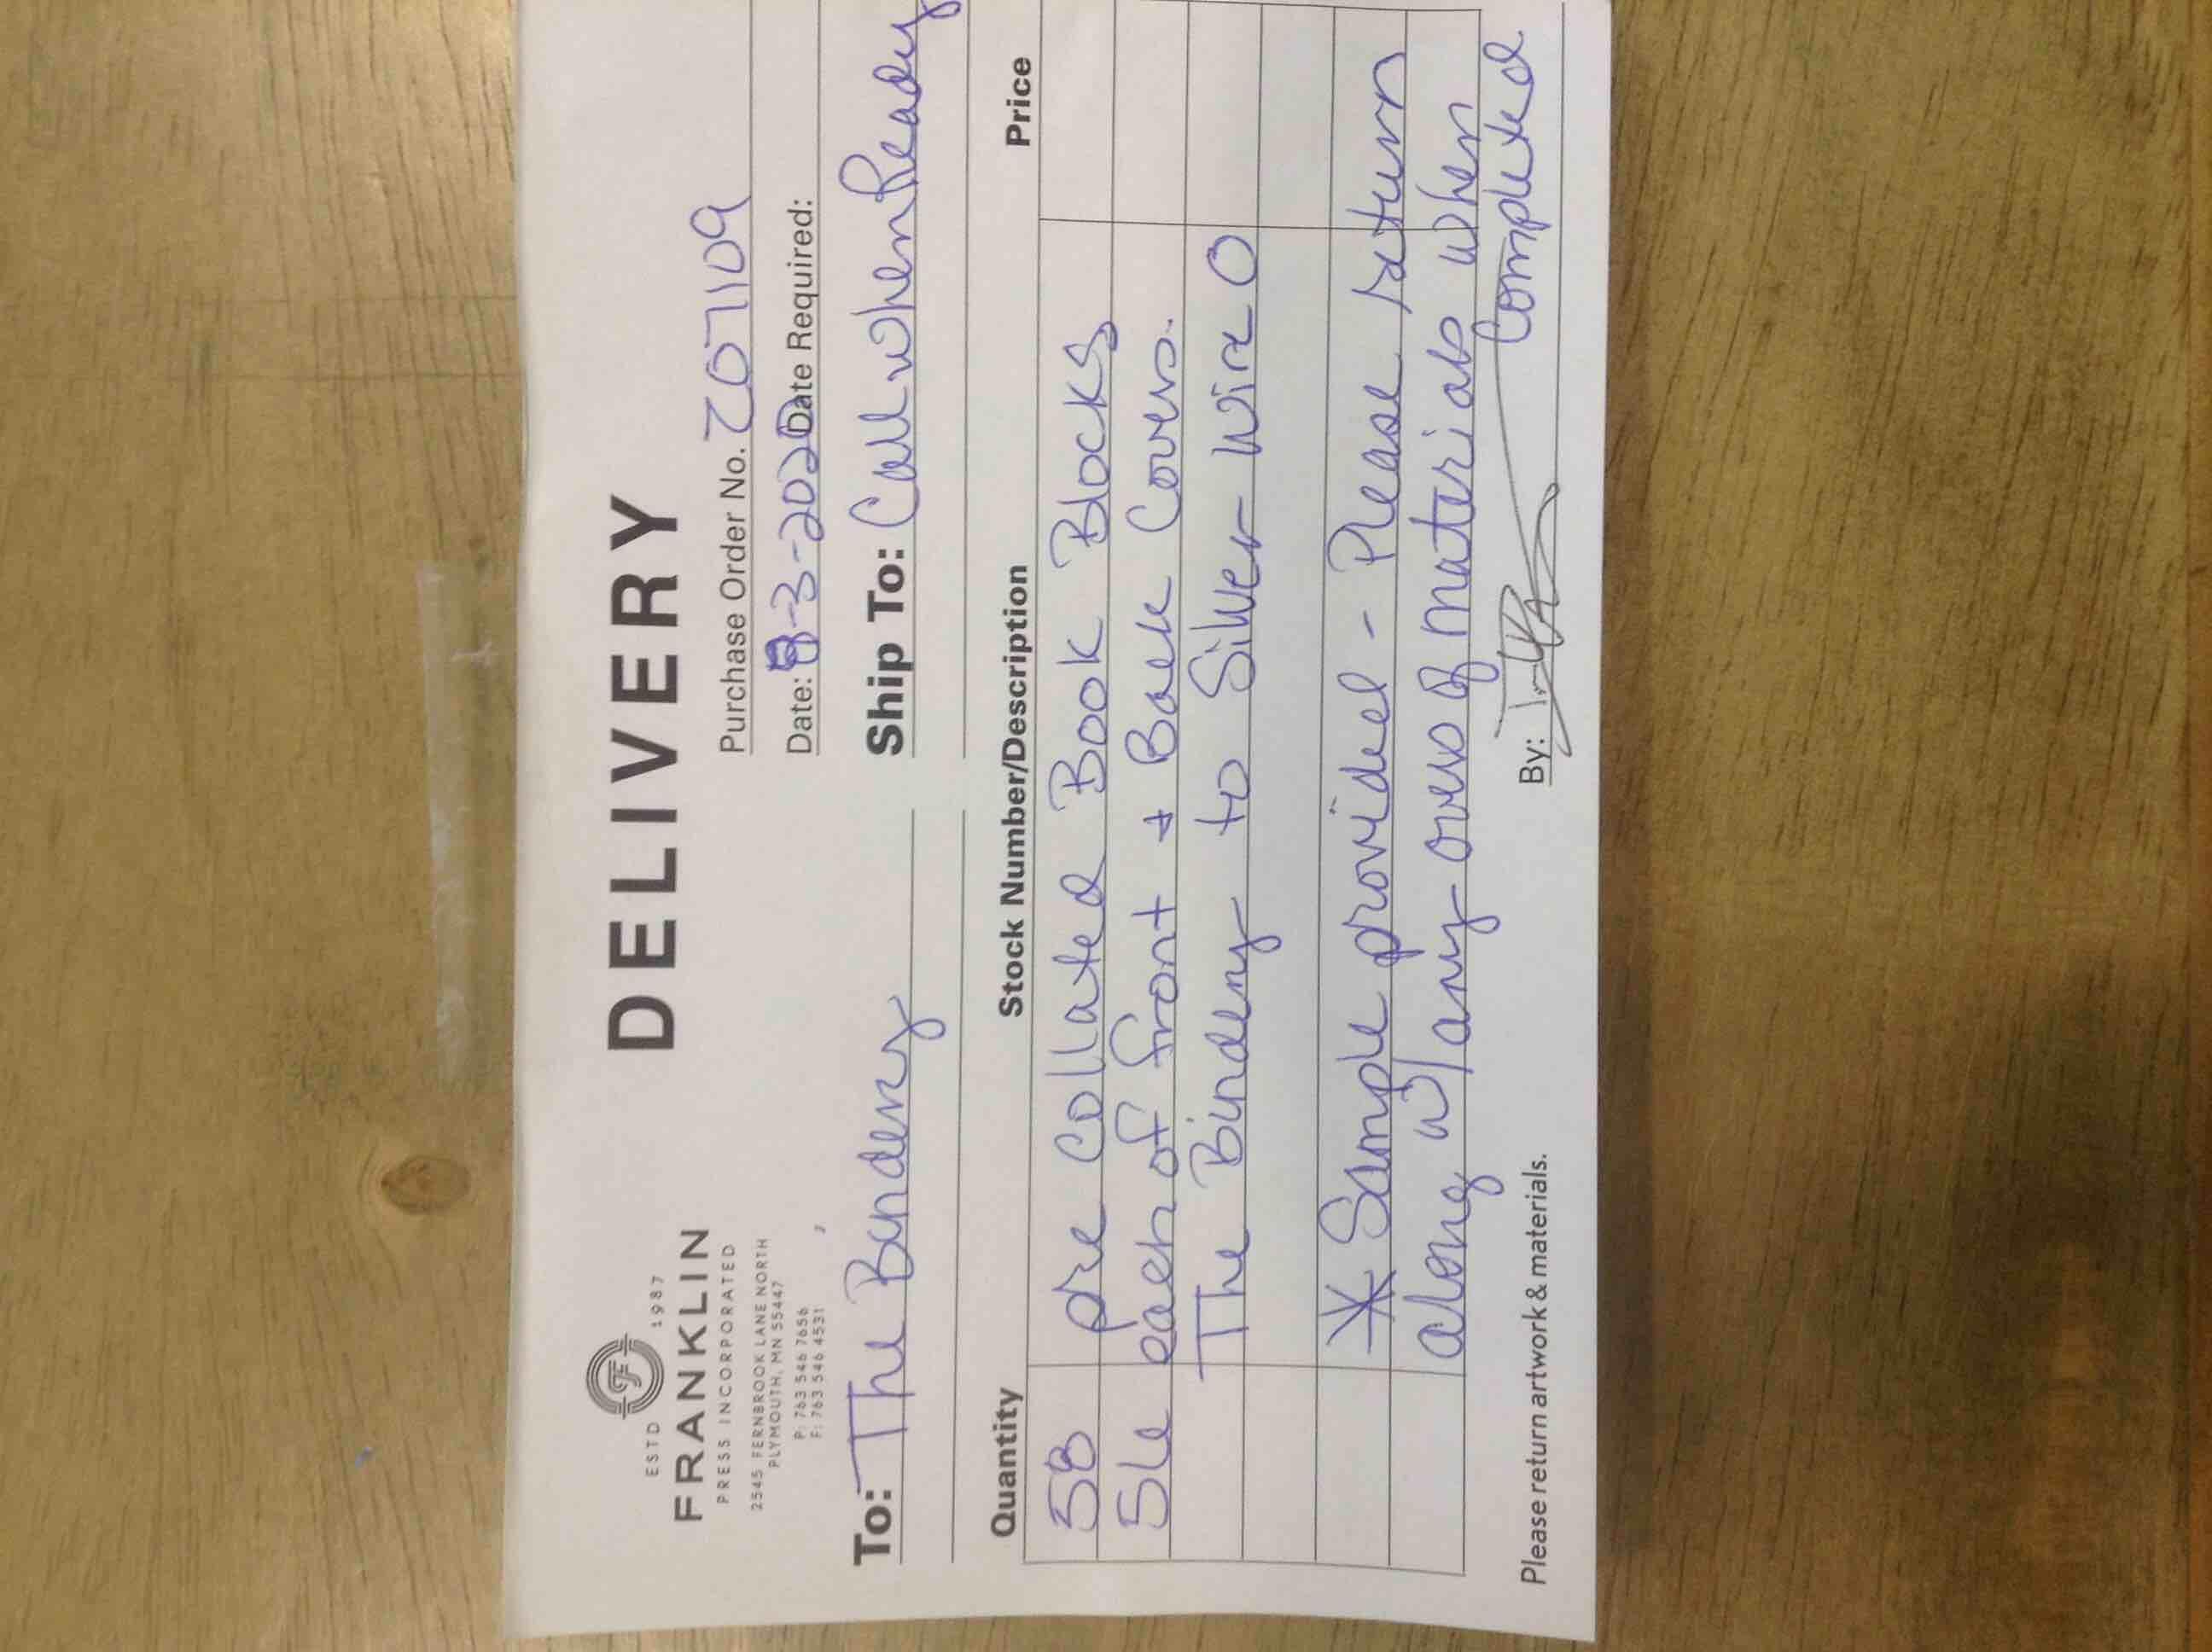 ESTD 1987
F
FRANKLIN
PRESS INCORPORATED
2545 FERNBROOK LANE NORTH
PLYMOUTH, MN 55447
P: 763 546 7656
F: 763 546 4531
DELIVERY
Purchase Order No. 207109
Date: 8-3-2020 Date Required:
To: The Bindery
Ship To: Call when Ready
Quantity Stock Number/Description Price
58 pre collated Book Blocks
56 each of front + Back Covers.
The Bindery to Silver Wire O
* Sample provided - Please return
along w/ any overs of materials when
completed
Please return artwork & materials.
By: